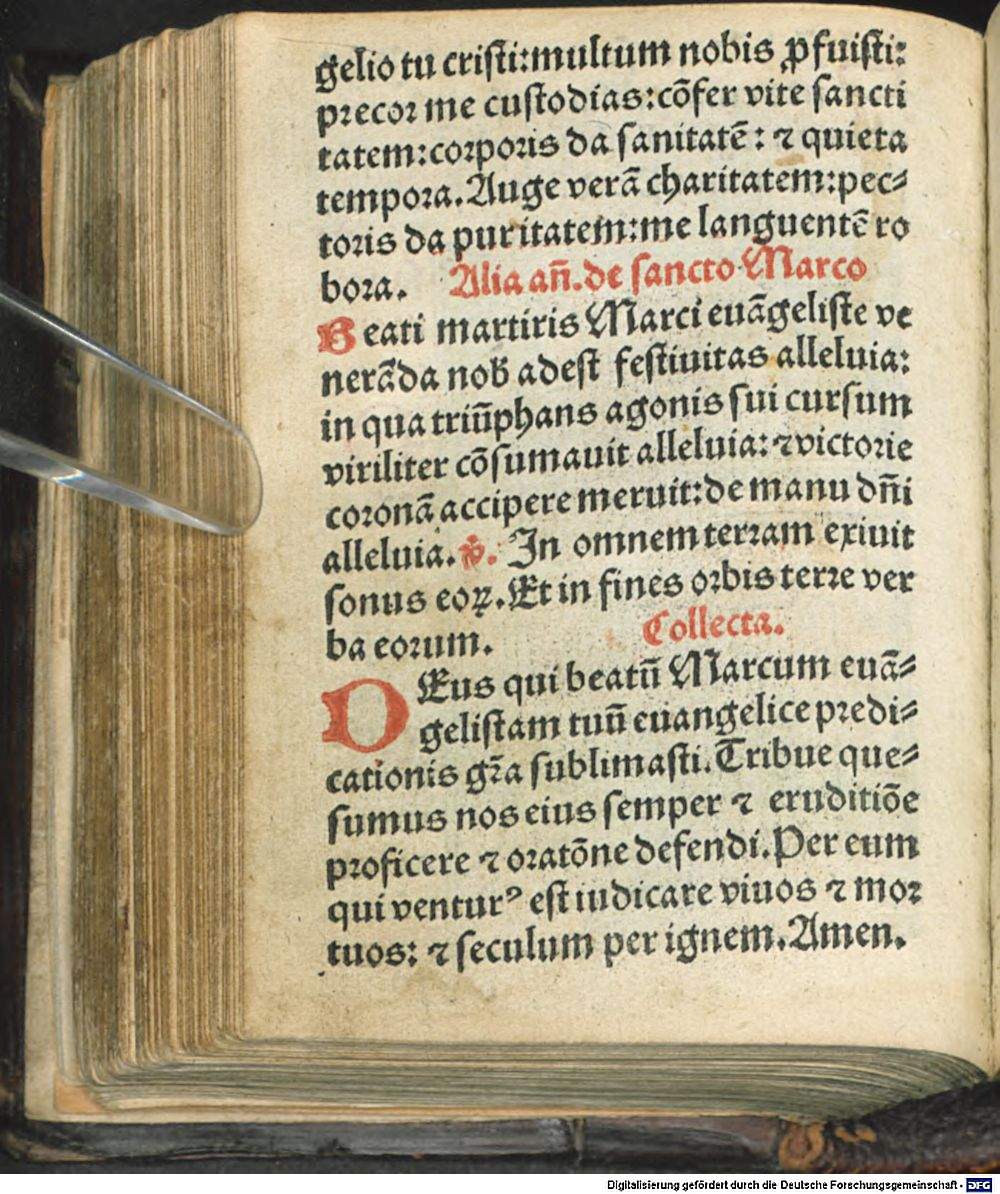 gelio tu cristi:multum nobis ꝓfuisti:
precor me custodias:cõfer vite sancti
tatem:corporis da sanitatẽ: ⁊ quieta
tempora. Auge verã charitatem:pec⸗
toris da puritatem:me languentẽ ro
bora. Alia añ. de sancto Marco
Beati martiris Marci euãgeliste ve
nerãda nob̃ adest festiuitas alleluia:
in qua triũphans agonis sui cursum
viriliter cõsumauit alleluia: ⁊ victorie
coronã accipere meruit:de manu dñi
alleluia. ℣. In omnem terram exiuit
sonus eoꝝ. Et in fines orbis terre ver
ba eorum. Collecta.
DEus qui beatũ Marcum euã⸗
gelistam tuũ euangelice predi⸗
cationis gr̃a sublimasti. Tribue que⸗
sumus nos eius semper ⁊ eruditiõe
proficere ⁊ oratõne defendi. Per eum
qui venturꝰ est iudicare viuos ⁊ mor
tuos: ⁊ seculum per ignem. Amen.
Digitalisierung gefördert durch die Deutsche Forschungsgemeinschaft - DFG